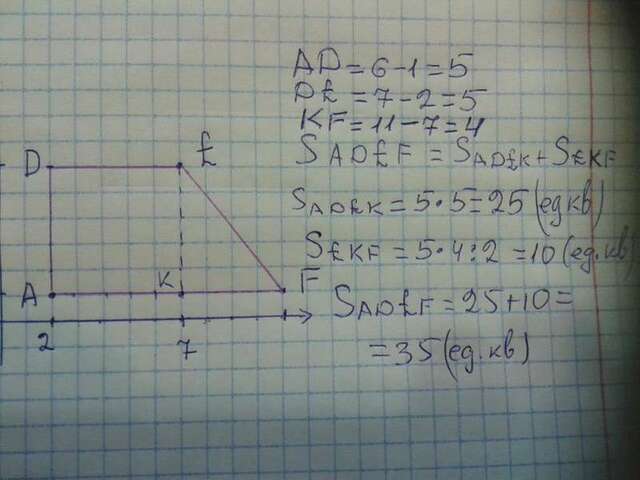 AD = 6 - 1 = 5
DE = 7 - 2 = 5
KF = 11 - 7 = 4
SADEF = SADEK + SEKF
SADEK = 5 · 5 = 25 (ед кв)
SEKF = 5 · 4 : 2 = 10 (ед. кв)
SADEF = 25 + 10 =
= 35 (ед. кв)
D E
A K F
2 7